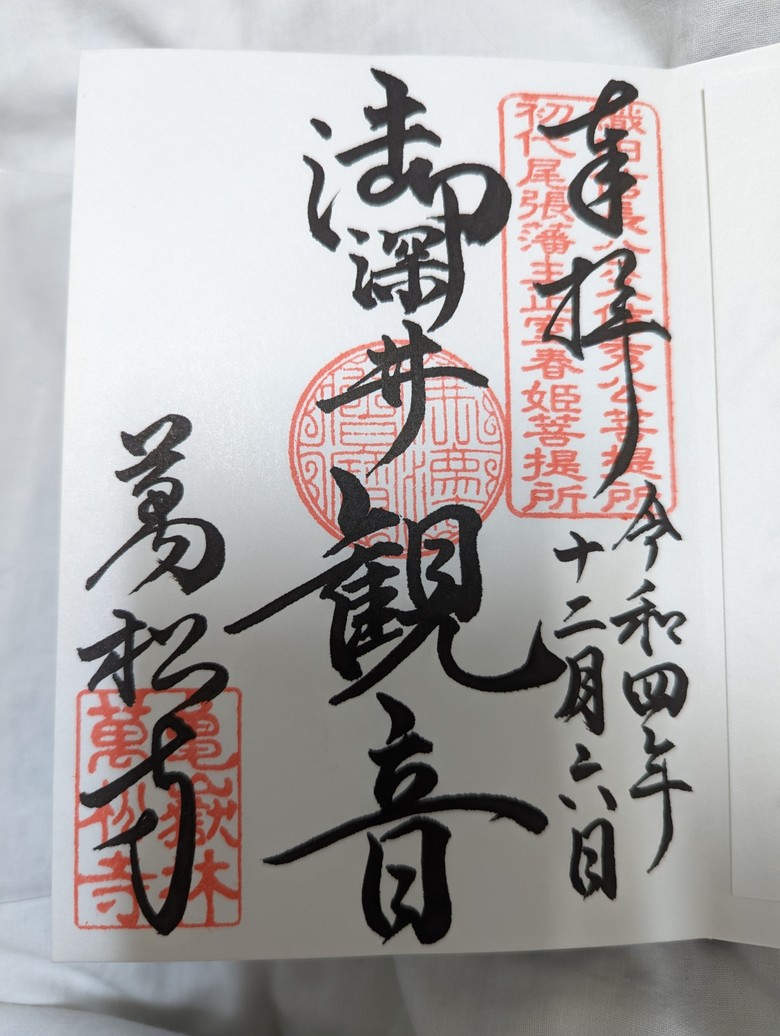 奉拝
織田信長公父信秀公菩提所
初代尾張藩主正室春姫菩提所
令和四年
十二月六日
御深井観音
萬松寺
龜嶽林
萬松寺